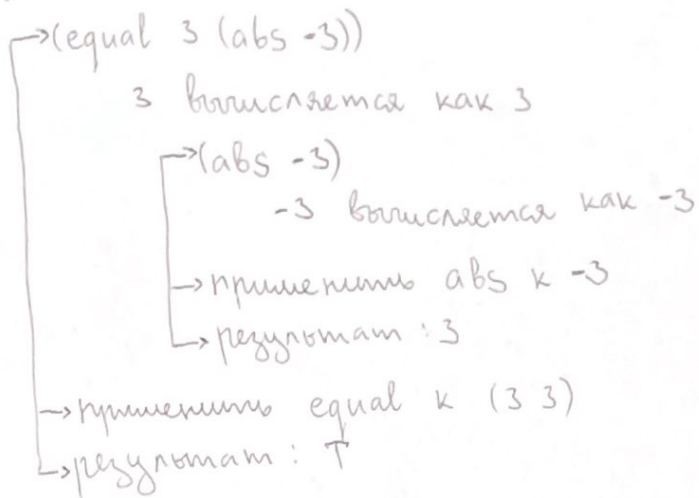 (equal 3 (abs -3))
3 вычисляется как 3
(abs -3)
-3 вычисляется как -3
применить abs к -3
результат: 3
применить equal к (3 3)
результат: T